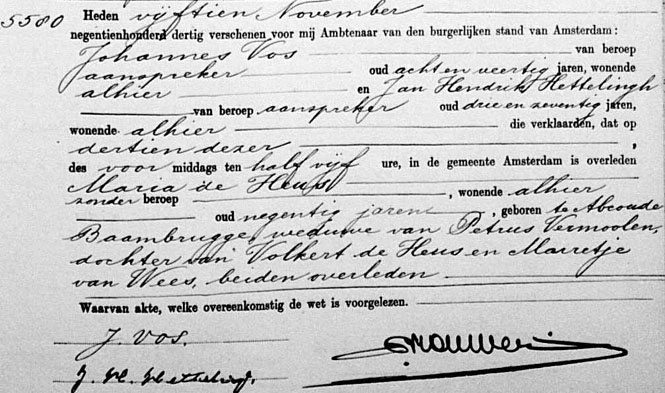 5580 Heden vijftien November
negentienhonderd dertig verschenen voor mij Ambtenaar van den burgerlijken stand van Amsterdam:
Johannes Vos van beroep
aanspreker oud acht en veertig jaren, wonende
alhier en Jan Hendrik Hettelingh
van beroep aanspreker oud drie en zeventig jaren,
wonende alhier die verklaarden, dat op
dertien dezer,
des voor middags ten half vijf ure, in de gemeente Amsterdam is overleden
Maria de Heus
zonder beroep, wonende alhier
oud negentig jaren, geboren te Abcoude
Baambrugge, weduwe van Petrus Vermoolen,
dochter van Volkert de Heus en Marretje
van Wees, beiden overleden
Waarvan akte, welke overeenkomstig de wet is voorgelezen.
J. Vos.
J. H. Hettelingh.